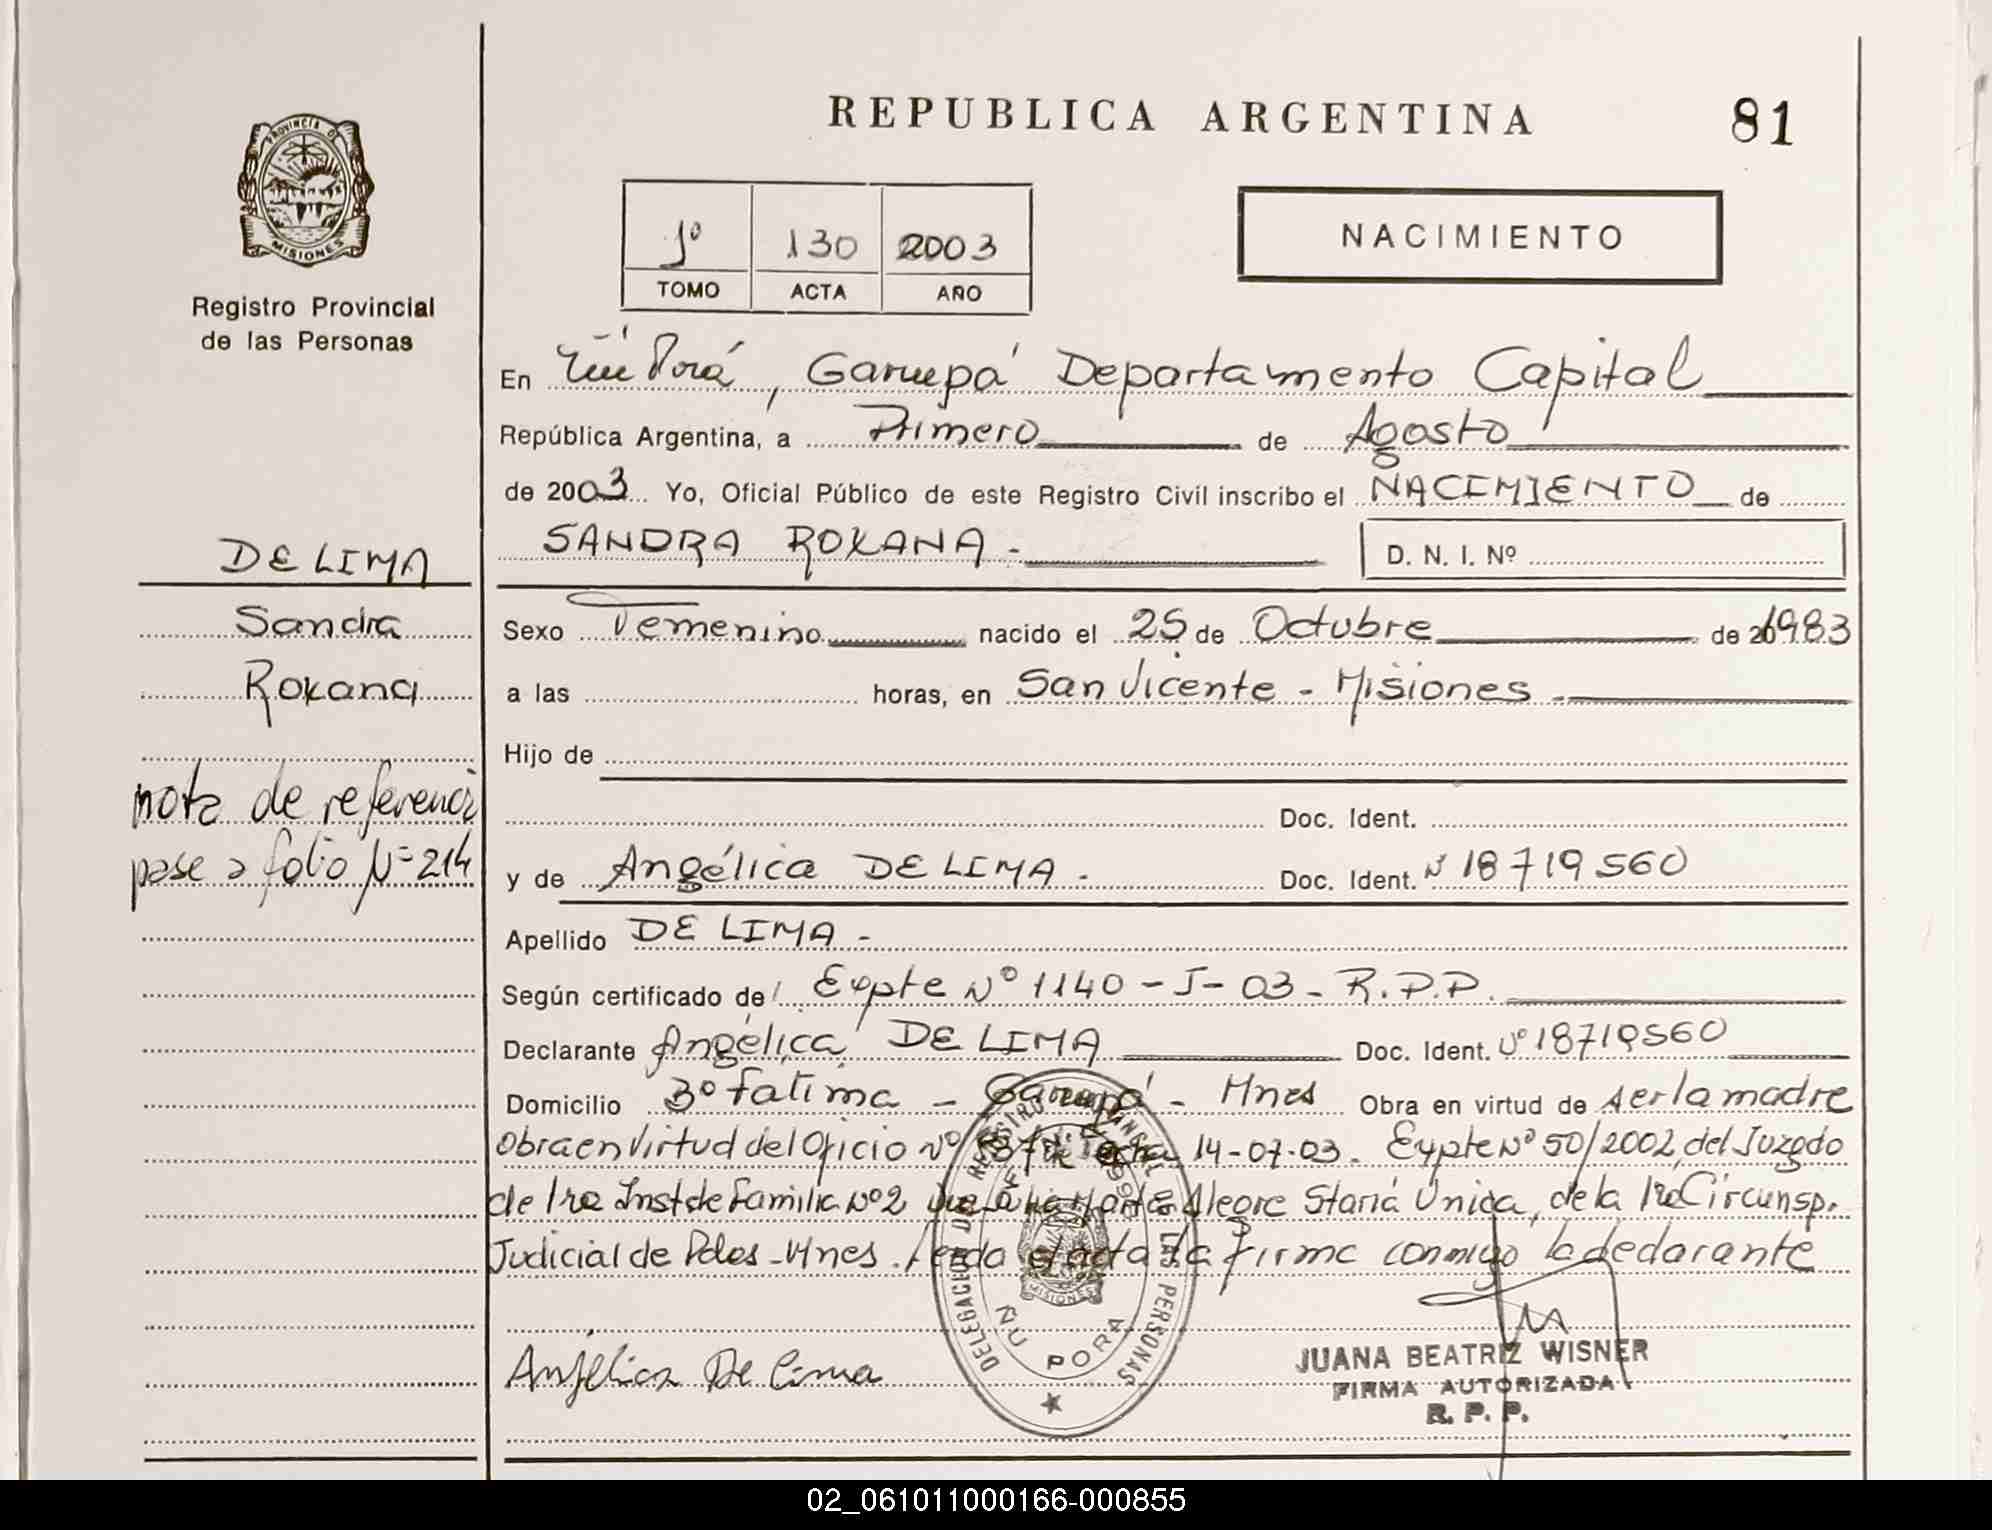 REPUBLICA ARGENTINA
81
PROVINCIA D
MISIONES
Registro Provincial
de las Personas
1º 130 2003
TOMO ACTA AÑO
NACIMIENTO
En Ñú Porá, Garupá Departamento Capital
República Argentina, a Primero de Agosto
de 2003 Yo, Oficial Público de este Registro Civil inscribo el NACIMIENTO de
SANDRA ROXANA.
D. N. I. Nº
DE LIMA
Sandra
Roxana
nota de referencia
pase a folio Nº 214
Sexo Femenino nacido el 25 de Octubre de 1983
a las horas, en San Vicente - Misiones -
Hijo de
Doc. Ident.
y de Angélica DE LIMA. Doc. Ident. Nº 18719560
Apellido DE LIMA -
Según certificado de Expte Nº 1140 - J - 03 - R.P.P.
Declarante Angélica DE LIMA Doc. Ident. Nº 18719560
Domicilio Bº Fatima - Garupá - Mnes Obra en virtud de ser la madre
Obra en Virtud del Oficio Nº 14-07-03. Expte Nº 50/2002, del Juzgdo
de 1ra Inst de Familia Nº 2 Alegre Staria Unica, de la 1ra Circunsp.
Judicial de Pdas - Mnes. Leida el acta la firma conmigo la declarante
DELEGACION DE REGISTRO PROVINCIAL DE LAS PERSONAS
MISIONES
ÑU PORA
Angélica De Lima
JUANA BEATRIZ WISNER
FIRMA AUTORIZADA
R. P. P.
02_061011000166-000855